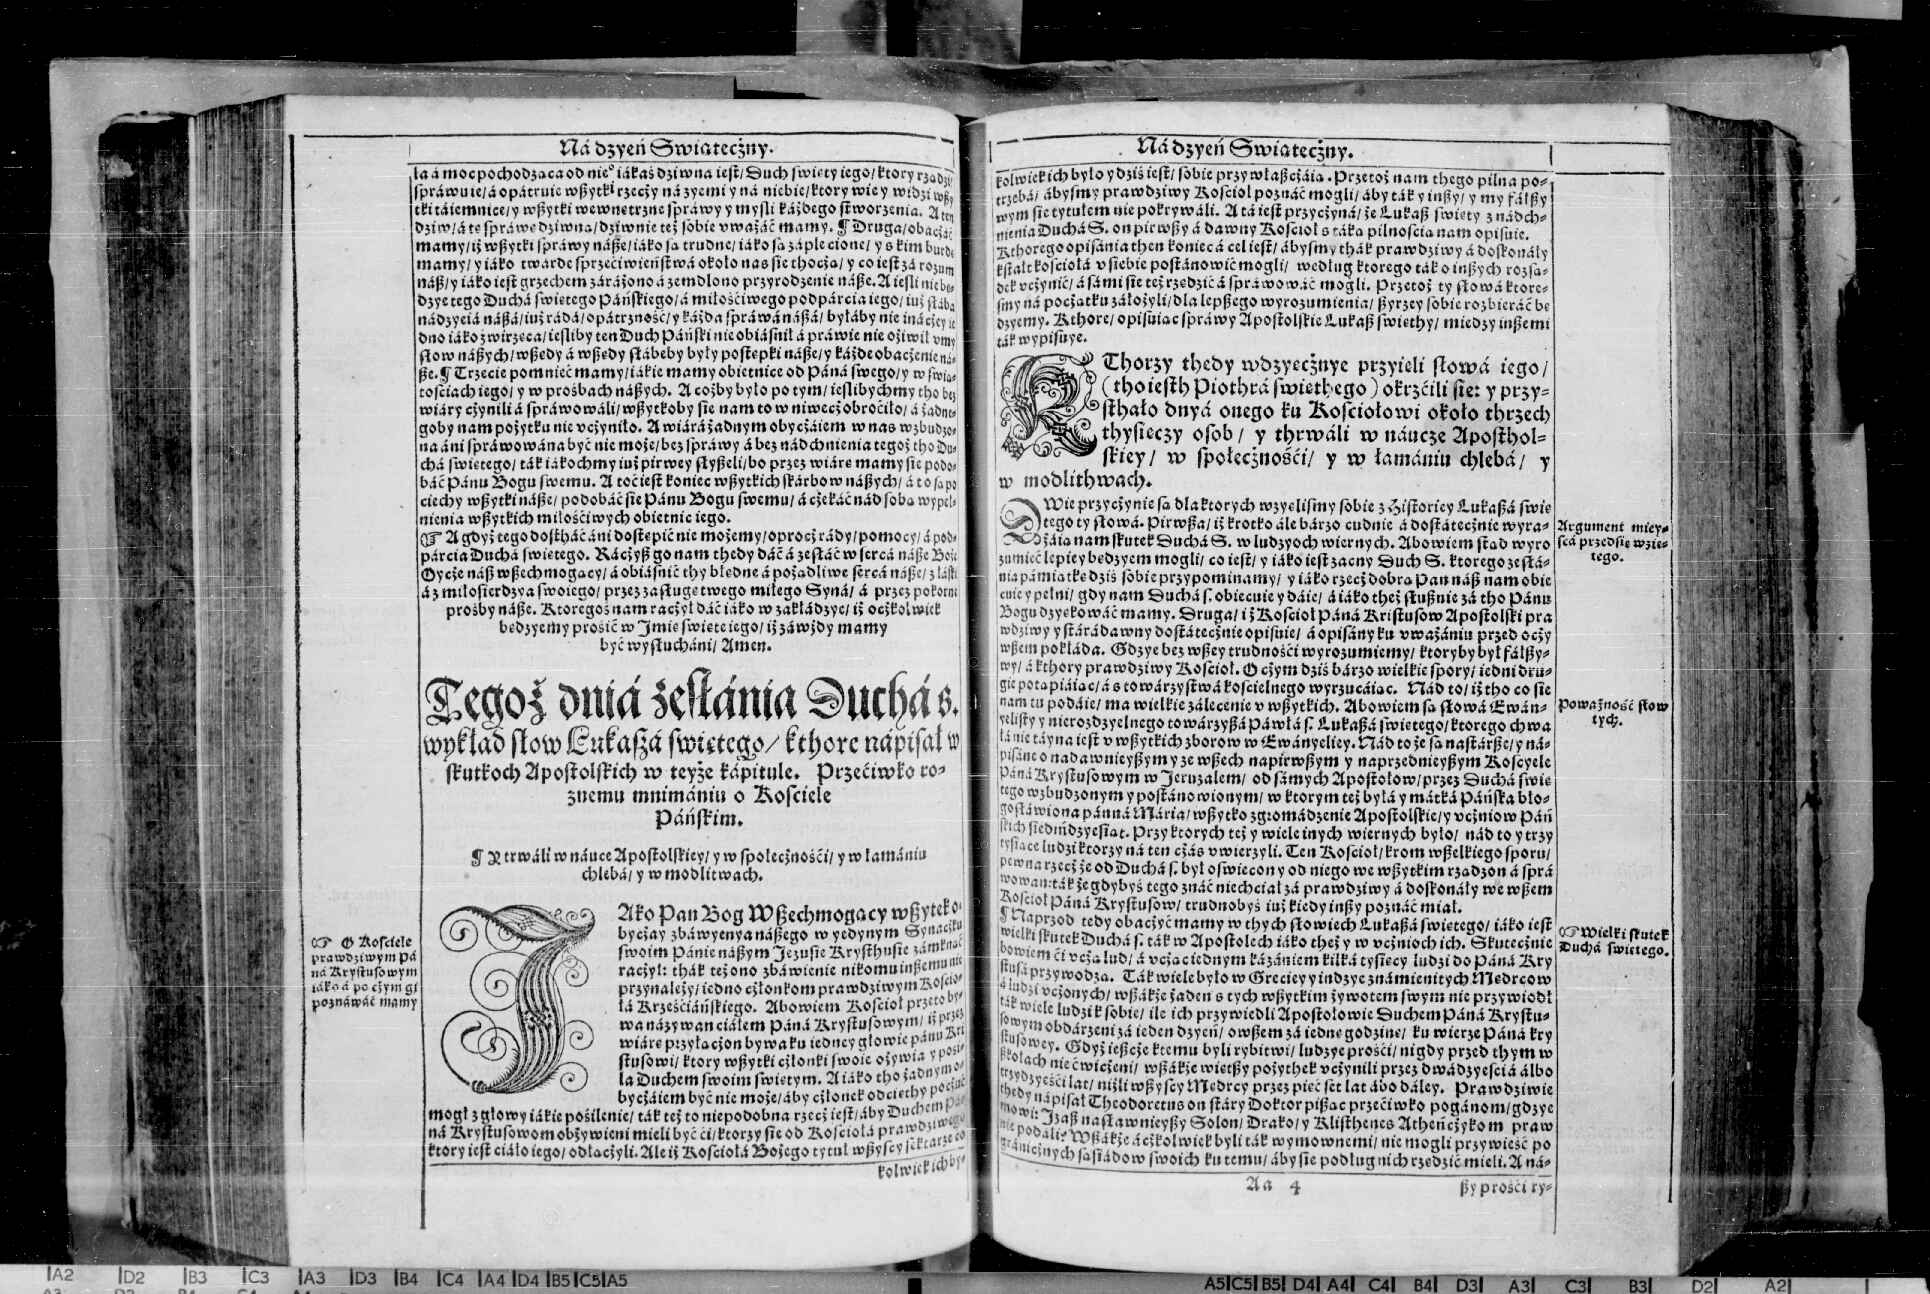 Ná dzyeń Swiątecżny.
łá á moc pochodząca od nieº iákaś dziwna iest/ Duch swięty iego/ ktory rządzi/
spráwuie/ á opátruie wßytki rzecży ná zyemi y ná niebie/ ktory wie y widzi wßy
tki táiemnice/ y wßytki wewnętrzne spráwy y mysli káżdego stworzenia. A ten
dziw/ á tę spráwę dziwną/ dziwnie też sobie vważáć mamy. ¶ Druga/ obacżáć
mamy/ iż wßytki spráwy náße/ iáko są trudne/ iáko są záplecione/ y s kim burdę
mamy/ y iáko twárde sprzećiwieństwá około nas się thocżą/ y co iest zá rozum
náß/ y iáko iest grzechem záráżono á zemdlono przyrodzenie náße. A iesli nie bę-
dzye tego Duchá swiętego Páńskiego/ á miłośćiwego podpárcia iego/ iuż słába
nádzyeiá náßá/ iuż rádá/ opátrzność/ y káżda spráwá náßá/ byłáby nie inácżey ie
dno iáko zwirzęca/ iesliby ten Duch Páński nie obiásnił á práwie nie ożiwił vmy
słow náßych/ wßędy á wßędy słábeby były postępki náße/ y káżde obacżenie ná-
ße. ¶ Trzecie pomnieć mamy/ iákie mamy obietnice od Páná swego/ y w swią-
tośćiach iego/ y w prośbach náßych. A cożby było po tym/ ieslibychmy tho bez
wiáry cżynili á spráwowáli/ wßytkoby się nam to w niwecz obroćiło/ á żadne-
goby nam pożytku nie vcżyniło. A wiárá żadnym obycżáiem w nas wzbudzo-
na áni spráwowána być nie może/ bez spráwy á bez nádchnienia tegoż tho Du-
chá swiętego/ ták iákochmy iuż pirwey słyßeli/ bo przez wiárę mamy się podo-
báć Pánu Bogu swemu. A toć iest koniec wßytkich skárbow náßych/ á to są po
ciechy wßytki náße/ podobáć się Pánu Bogu swemu/ á cżekáć nád sobą wypeł-
nienia wßytkich miłośćiwych obietnic iego.
☞ A gdyż tego dostháć áni dostępić nie możemy/ oprocż rády/ pomocy/ á pod-
párcia Duchá swiętego. Ráczyß go nam thedy dáć á zesłáć w sercá náße Boże
Oycże náß wßechmogący/ á obiásnić thy błędne á pożądliwe sercá náße/ z łáski
á z miłosierdzya swoiego/ przez zasługę twego miłego Syná/ á przez pokorne
prośby náße. Ktoregoś nam racżył dáć iáko w zakłádzye/ iż ocżkolwiek
będzyemy prośić w Imię swięte iego/ iż záwżdy mamy
być wysłucháni/ Amen.
Tegoż dniá żesłánia Duchá s.
wykład słow Łukaszá swiętego/ kthore nápisał w
skutkoch Apostolskich w teyże kápitule. Przećiwko ro-
znemu mnimániu o Kosciele
Páńskim.
¶ Y trwáli w náuce Apostolskiey/ y w społecżnośći/ y w łamániu
chlebá/ y w modlitwach.
☞ O Kosciele
prawdziwym Pá
ná Krystusowym
iáko á po cżym gi
poznáwáć mamy
IAko Pan Bog Wßechmogący wßytek o-
bycżay zbáwyenya náßego w yedynym Synacżku
swoim Pánie náßym Iezusie Krysthusie zámknąć
racżył: thák też ono zbáwienie nikomu inßemu nie
przynależy/ iedno cżłonkom prawdziwym Kościo-
łá Krześćiáńskiego. Abowiem Kosciół przeto by-
wa názywan ciáłem Páná Krystusowym/ iż przez
wiárę przyłącżon bywa ku iedney głowie pánu Kri
stusowi/ ktory wßytki cżłonki swoie ożywia y posi-
la Duchem swoim swiętym. A iáko tho żadnym o-
bycżáiem być nie może/ áby cżłonek odcięthy pocżuć
mogł z głowy iákie pośilenie/ ták też to niepodobna rzecż iest/ áby Duchem Pá-
ná Krystusowom obżywieni mieli być ći/ ktorzy się od Kosciołá prawdziwego
ktory iest ciáło iego/ odłącżyli. Ale iż Kościołá Bożego tytuł wßyscy sektarze co
kolwiek ich by-
Ná dzyeń Swiątecżny.
kolwiek ich było y dziś iest/ sobie przywłaßcżáią. Przetoż nam thego pilna po-
trzebá/ ábysmy prawdziwy Kościoł poznáć mogli/ áby ták y inßy/ y my fałßy
wym się tytułem nie pokrywáli. A tá iest przycżyná/ że Lukaß swięty z nádch-
nienia Duchá S. on pirwßy á dawny Kościoł s táką pilnością nam opisuie.
Kthorego opisánia then koniec á cel iest/ ábysmy thák prawdziwy á doskonáły
kstałt kościołá v siebie postánowić mogli/ według ktorego ták o inßych rozsą-
dek vcżynić/ á sámi się też rzędzić á spráwowáć mogli. Przetoż ty słowá ktore-
śmy ná pocżątku záłożyli/ dla lepßego wyrozumienia/ ßyrzey sobie rozbieráć bę
dzyemy. Kthore/ opisuiąc spráwy Apostolskie Lukaß swiethy/ miedzy inßemi
ták wypisuye.
KThorzy thedy wdzyecżnye przyięli słowá iego/
(tho iesth Piothrá swiethego) okrzćili się: y przy-
sthało dnyá onego ku Kosciołowi około thrzech
thysięczy osob/ y thrwáli w náucze Aposthol-
skiey/ w społecżnośći/ y w łamániu chlebá/ y
w modlithwach.
DWie przycżynie są dla ktorych wzyelismy sobie z Historiey Lukaßá swię
tego ty słowá. Pirwßa/ iż krotko ále bárzo cudnie á dostátecżnie wyra-
dżáia nam skutek Duchá S. w ludzyoch wiernych. Abowiem stąd wyro
zumieć lepiey będzyem mogli/ co iest/ y iáko iest zacny Duch S. ktorego zesłá-
nia pámiątkę dziś sobie przypominamy/ y iáko rzecż dobra Pan náß nam obie
cuie y pełni/ gdy nam Duchá s. obiecuie y dáie/ á iáko theż słußnie zá tho Pánu
Bogu dzyękowáć mamy. Druga/ iż Kościoł Páná Kristusow Apostolski pra
wdziwy y stárádawny dostátecżnie opisuie/ á opisány ku vważániu przed ocży
wßem pokłáda. Gdzye bez wßey trudnośći wyrozumiemy/ ktoryby był fałßy-
wy/ á kthory prawdziwy Kościoł. O cżym dziś bárzo wielkie spory/ iedni dru-
gie potápiáiąc/ á s towárzystwá kościelnego wyrzucáiąc. Nád to/ iż tho co się
nam tu podáie/ ma wielkie zálecenie v wßytkich. Abowiem są słowá Ewán-
yelisty y nierozdzyelnego towárzyßá Páwłá s. Lukaßá swiętego/ ktorego chwa
łá nie táyna iest v wßytkich zborow w Ewányeliey. Nád to że są nastárße/ y ná-
pisáne o nadawnieyßym y ze wßech napirwßym y naprzednieyßym Kościyele
Páná Krystusowym w Ieruzalem/ od sámych Apostołow/ przez Duchá swię
tego wzbudzonym y postánowionym/ w ktorym też byłá y mátká Páńska bło-
gosłáwiona pánná Mária/ wßytko zgromádzenie Apostolskie/ y vcżniow Páń
skich siedmdzyesiąt. Przy ktorych też y wiele inych wiernych było/ nád to y trzy
tysiące ludzi ktorzy ná ten cżás vwierzyli. Ten Kościoł/ krom wßelkiego sporu/
pewna rzecż że od Duchá s. był oswiecon y od niego we wßytkim rządzon á sprá
wowan: ták że gdybyś tego znáć niechciał zá prawdziwy á doskonáły we wßem
Kościoł Páná Krystusow/ trudnobyś iuż kiedy inßy poznáć miał.
¶ Naprzod tedy obacżyć mamy w thych słowiech Lukaßá swiętego/ iáko iest
wielki skutek Duchá s. ták w Apostolech iáko theż y w vcżnioch ich. Skutecżnie
bowiem ći vcżą lud/ á vcżąc iednym kázániem kilká tysięcy ludzi do Páná Kry
stusá przywodzą. Ták wiele było w Greciey y indzye známienitych Mędrcow
á ludzi vcżonych/ wßákże żaden s tych wßytkim żywotem swym nie przywiodł
ták wiele ludzi k sobie/ ile ich przywiedli Apostołowie Duchem Páná Krystu-
sowym obdárzeni zá ieden dzyeń/ owßem zá iednę godzinę/ ku wierze Páná kry
stusowey. Gdyż ießcże ktemu byli rybitwi/ ludzye prośći/ nigdy przed thym w
ßkołach nie ćwicżeni/ wßákże więtßy pożythek vcżynili przez dwádzyeśćiá álbo
trzydzyeśći lat/ niżli wßyscy Mędrcy przez pięć set lat ábo dáley. Prawdziwie
thedy nápisał Theodoretus on stáry Doktor pißąc przećiwko pogánom/ gdzye
mowi: Izaß nastáwnieyßy Solon/ Drako/ y Klisthenes Atheńcżykom praw
nie podáli? Wßákże ácżkolwiek byli ták wymownemi/ nie mogli przywieść po
gránicżnych sąśiádow swoich ku temu/ áby się podług nich rzędzić mieli. A ná-
Aa 4
ßy prośći ry-
Argument miey-
scá przedsię wzię-
tego.
Poważność słow
tych.
☞ Wielki skutek
Duchá swiętego.